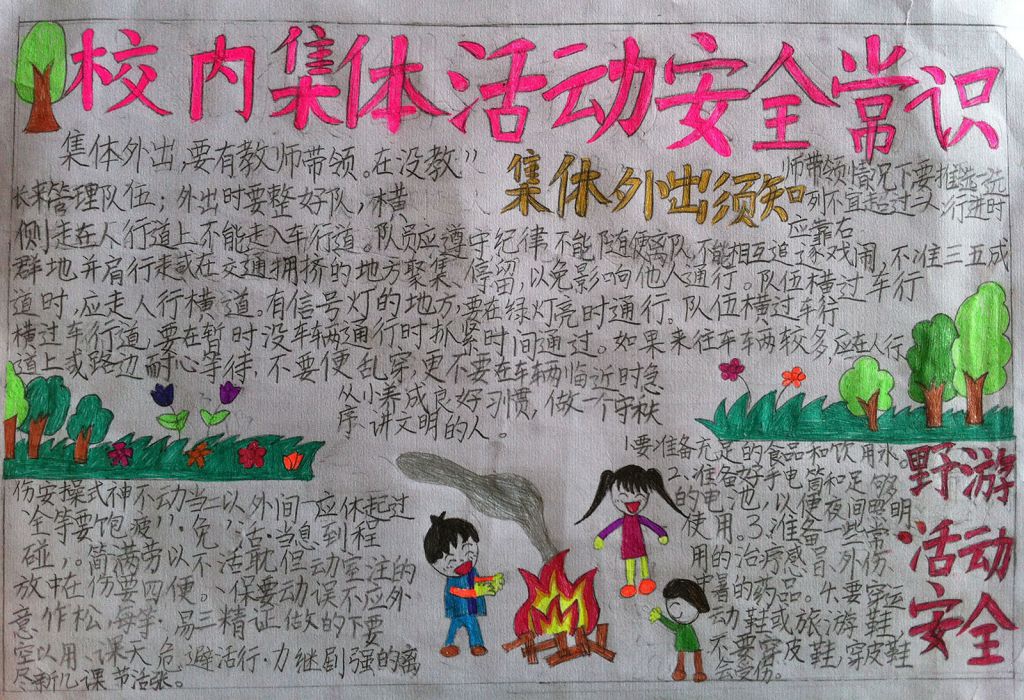 校内集体活动安全常识
集体外出须知
集体外出,要有教师带领。在没教
师带领情况下要推选一
长来管理队伍;外出时要整好队,横
列不宜超过二人;行进时
应靠右
侧走在人行道上,不能走入车行道。队员应遵守纪律,不能随便离队,不能相互追逐戏闹,不准三五成
群地并肩行走或在交通拥挤的地方聚集、停留,以免影响他人通行。队伍横过车行
道时,应走人行横道。有信号灯的地方,要在绿灯亮时通行。队伍横过车行
横过车行道,要在暂时没车辆通行时抓紧时间通过。如果来往车辆较多,应在人行
道上或路边耐心等待,不要便乱穿,更不要在车辆临近时急
从小养成良好习惯,做一个守秩
序、讲文明的人。
野游
活动
安全
1要准备充足的食品和饮用水。
2.准备好手电筒和足够
的电池,以便夜间照明
使用。3.准备一些常
用的治疗感冒、外伤、
中暑的药品。4.要穿运
动鞋或旅游鞋,
不要穿皮鞋,穿皮鞋
会受伤。
伤安操式神不动当二以外间一应休起过
全等要饱疲
活当息到程
碰,。简满劳以不活耽但动室注的
放中在伤要四便。、保要动误不应外
意作松,每等·易三精让做的下要
室以用、课天危避活行·力继剧强的离
尽新几课节活张。